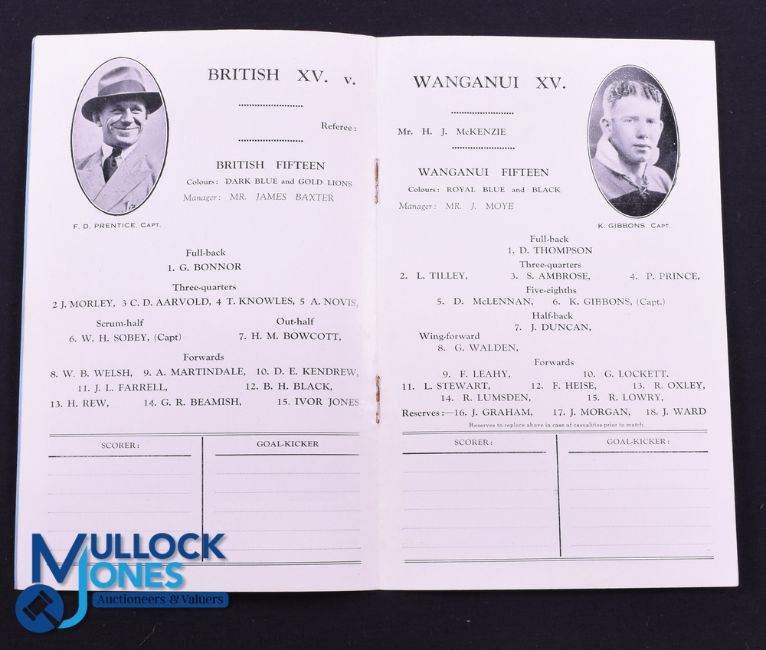 BRITISH XV. v.
Referee:
BRITISH FIFTEEN
Colours: DARK BLUE and GOLD LIONS
Manager: MR. JAMES BAXTER
F. D. PRENTICE, CAPT.
Full-back
1. G. BONNOR
Three-quarters
2 J. MORLEY, 3 C. D. AARVOLD, 4 T. KNOWLES, 5 A. NOVIS,
Scrum-half Out-half
6. W. H. SOBEY, (Capt) 7. H. M. BOWCOTT,
Forwards
8. W. B. WELSH, 9. A. MARTINDALE, 10. D. E. KENDREW,
11. J. L. FARRELL, 12. B. H. BLACK,
13. H. REW, 14. G. R. BEAMISH, 15. IVOR JONES
SCORER: GOAL-KICKER
WANGANUI XV.
Mr. H. J. McKENZIE
WANGANUI FIFTEEN
Colours: ROYAL BLUE and BLACK
Manager: MR. J. MOYE
K. GIBBONS, CAPT.
Full-back
1. D. THOMPSON
Three-quarters
2. L. TILLEY, 3. S. AMBROSE, 4. P. PRINCE,
Five-eighths
5. D. McLENNAN, 6. K. GIBBONS, (Capt.)
Half-back
7. J. DUNCAN,
Wing-forward
8. G. WALDEN,
Forwards
9. F. LEAHY, 10. G. LOCKETT.
11. L. STEWART, 12. F. HEISE, 13. R. OXLEY,
14. R. LUMSDEN, 15. R. LOWRY,
Reserves:—16. J. GRAHAM, 17. J. MORGAN, 18. J. WARD
Reserves to replace above in case of casualities prior to match.
SCORER: GOAL-KICKER:
MULLOCK
JONES
Auctioneers & Valuers